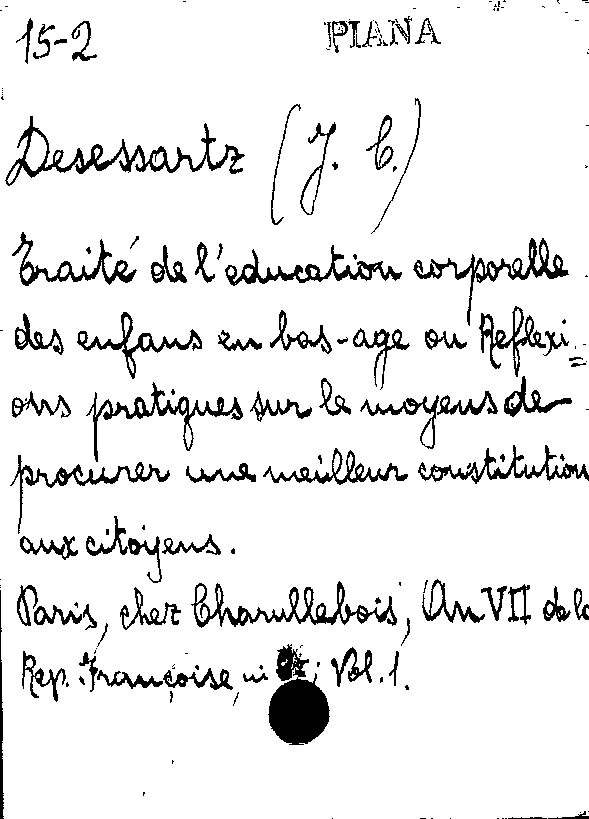 15-2 PIANA
Desessartz (J. C.)
Traité de l'education corporelle
des enfans en bas-age ou Reflexi=
ons pratiques sur le moyens de
procurer une meilleur constitution
aux citoyens.
Paris, chez Charullebois, An VII de la
Rep. Françoise, in ; Vol. 1.